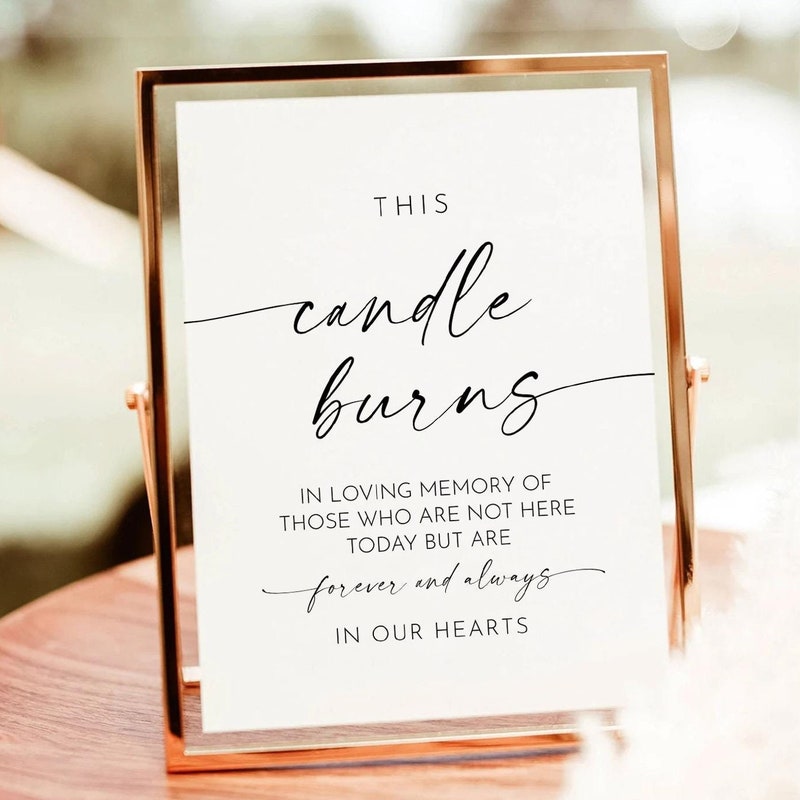 THIS
candle
burns
IN LOVING MEMORY OF
THOSE WHO ARE NOT HERE
TODAY BUT ARE
forever and always
IN OUR HEARTS